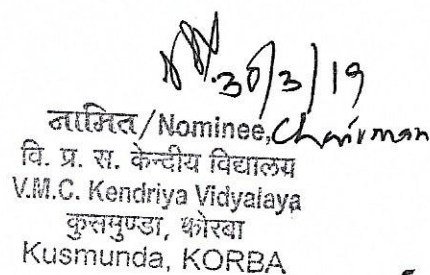 30/3/19
नामित/Nominee, Chairman
वि. प्र. स. केन्दीय विद्यालय
V.M.C. Kendriya Vidyalaya
कुसमुण्डा, कोरबा
Kusmunda, KORBA